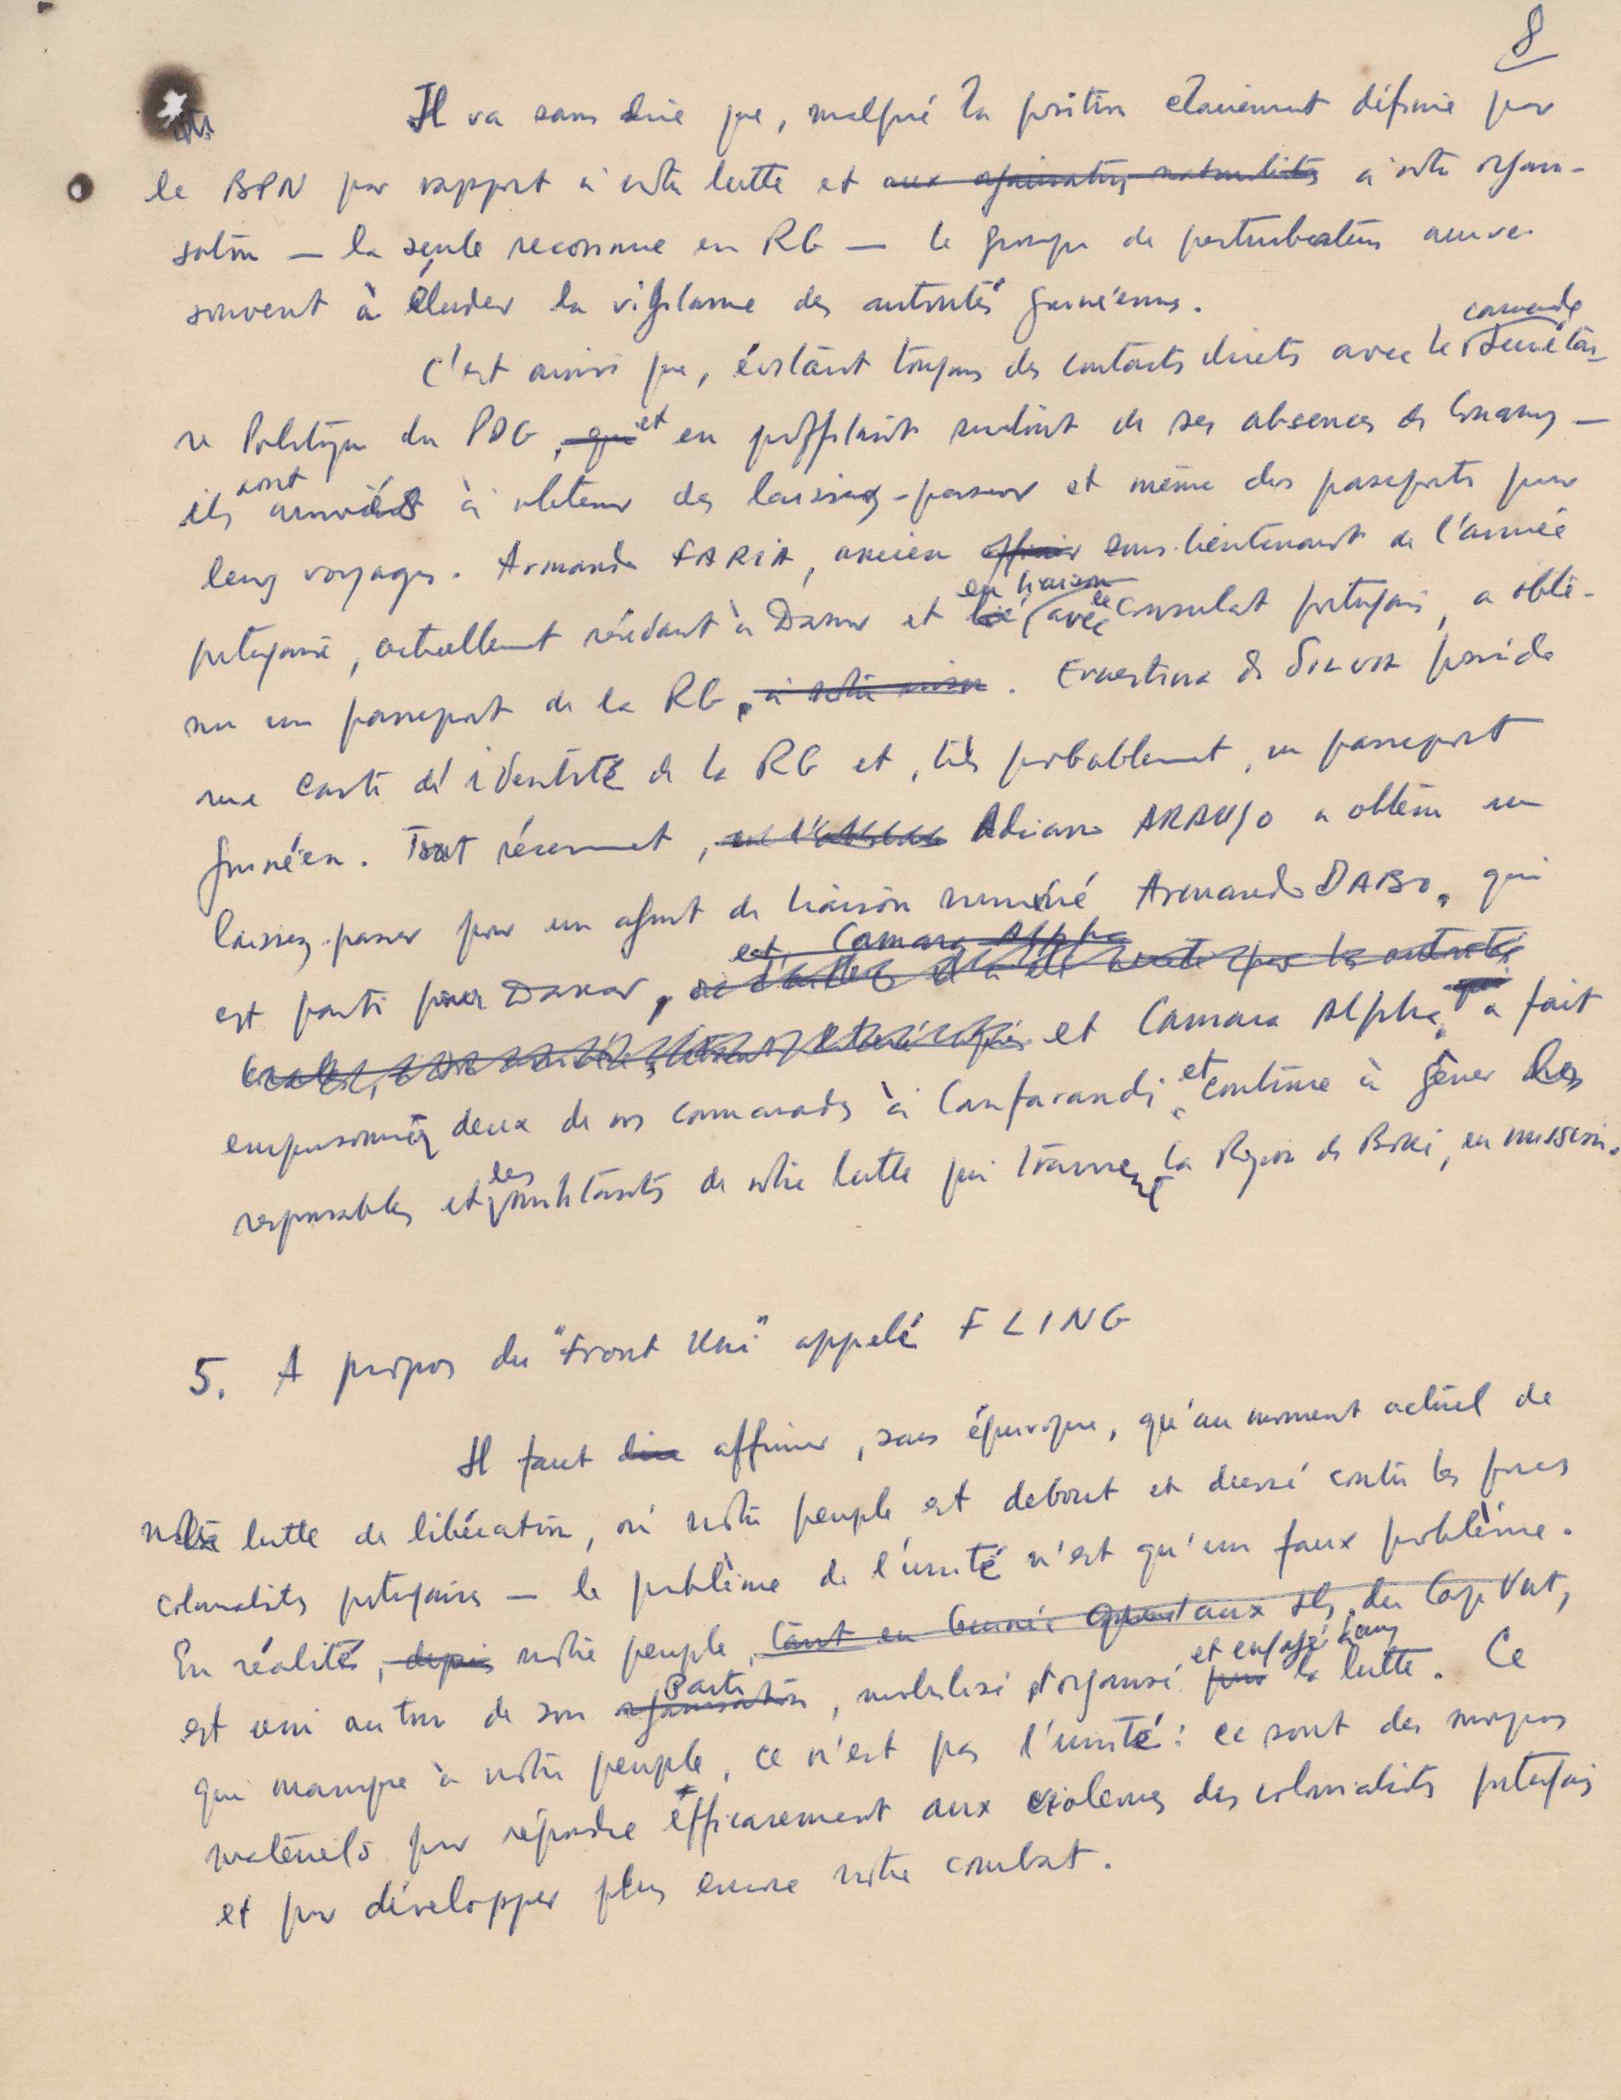 8
Il va sans dire que, malgré la position clairement définie par
le BPN par rapport à notre lutte et aux organisations nationalistes à notre organi-
sation — la seule reconnue en RG — le groupe de perturbateurs arrive
souvent à éluder la vigilance des autorités guinéennes.
camarade
C'est ainsi que, évitant toujours des contacts directs avec le Secrétai-
re Politique du PDG, qui et en profitant surtout de ses absences de Conakry —
ils sont arrivés à obtenir des laissez-passer et même des passeports pour
leurs voyages. Armando FARIA, ancien officier sous-lieutenant de l'armée
en liaison
portugaise, actuellement résidant à Dakar et lié avec le Consulat portugais, a obte-
nu un passeport de la RG, à notre . Ernestina da SILVA possède
une carte d'identité de la RG et, très probablement, un passeport
guinéen. Tout récemment, en l'absence Adriano ARAUJO a obtenu un
laissez-passer pour un agent de liaison nommé Armando DABO, qui
et Camara Alpha
est parti pour Dakar, par les autorités
et Camara Alpha, qui a fait
emprisonner deux de nos camarades à Canfarandi et continue à gêner les
responsables et les militants de notre lutte qui traversent la Région de Boké, en mission.
5. A propos du "Front Uni" appelé FLING
Il faut dire affirmer, sans équivoque, qu'au moment actuel de
notre lutte de libération, où notre peuple est debout et dressé contre les forces
colonialistes portugaises — le problème de l'unité n'est qu'un faux problème.
En réalité, depuis notre peuple, tant en Guinée qu'aux Iles du Cap Vert,
et engagé dans
est uni autour de son organisation Parti, mobilisé et organisé pour la lutte. Ce
qui manque à notre peuple, ce n'est pas l'unité: ce sont des moyens
matériels pour répondre efficacement aux violences des colonialistes portugais
et pour développer plus encore notre combat.